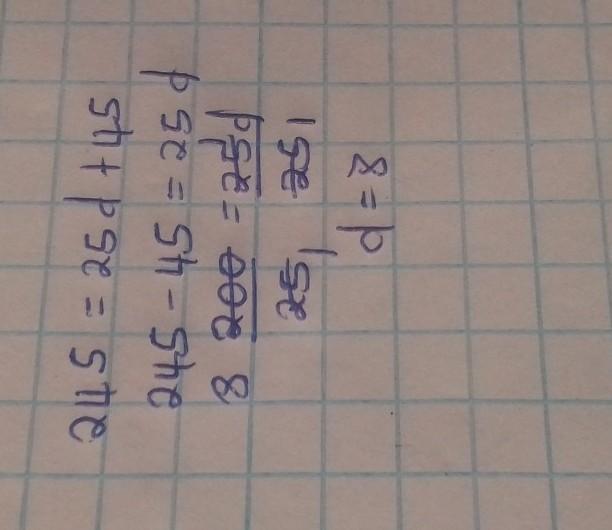 245 = 25d + 45
245 - 45 = 25d
8 200 = 25d 1
25 1 25 1
d = 8